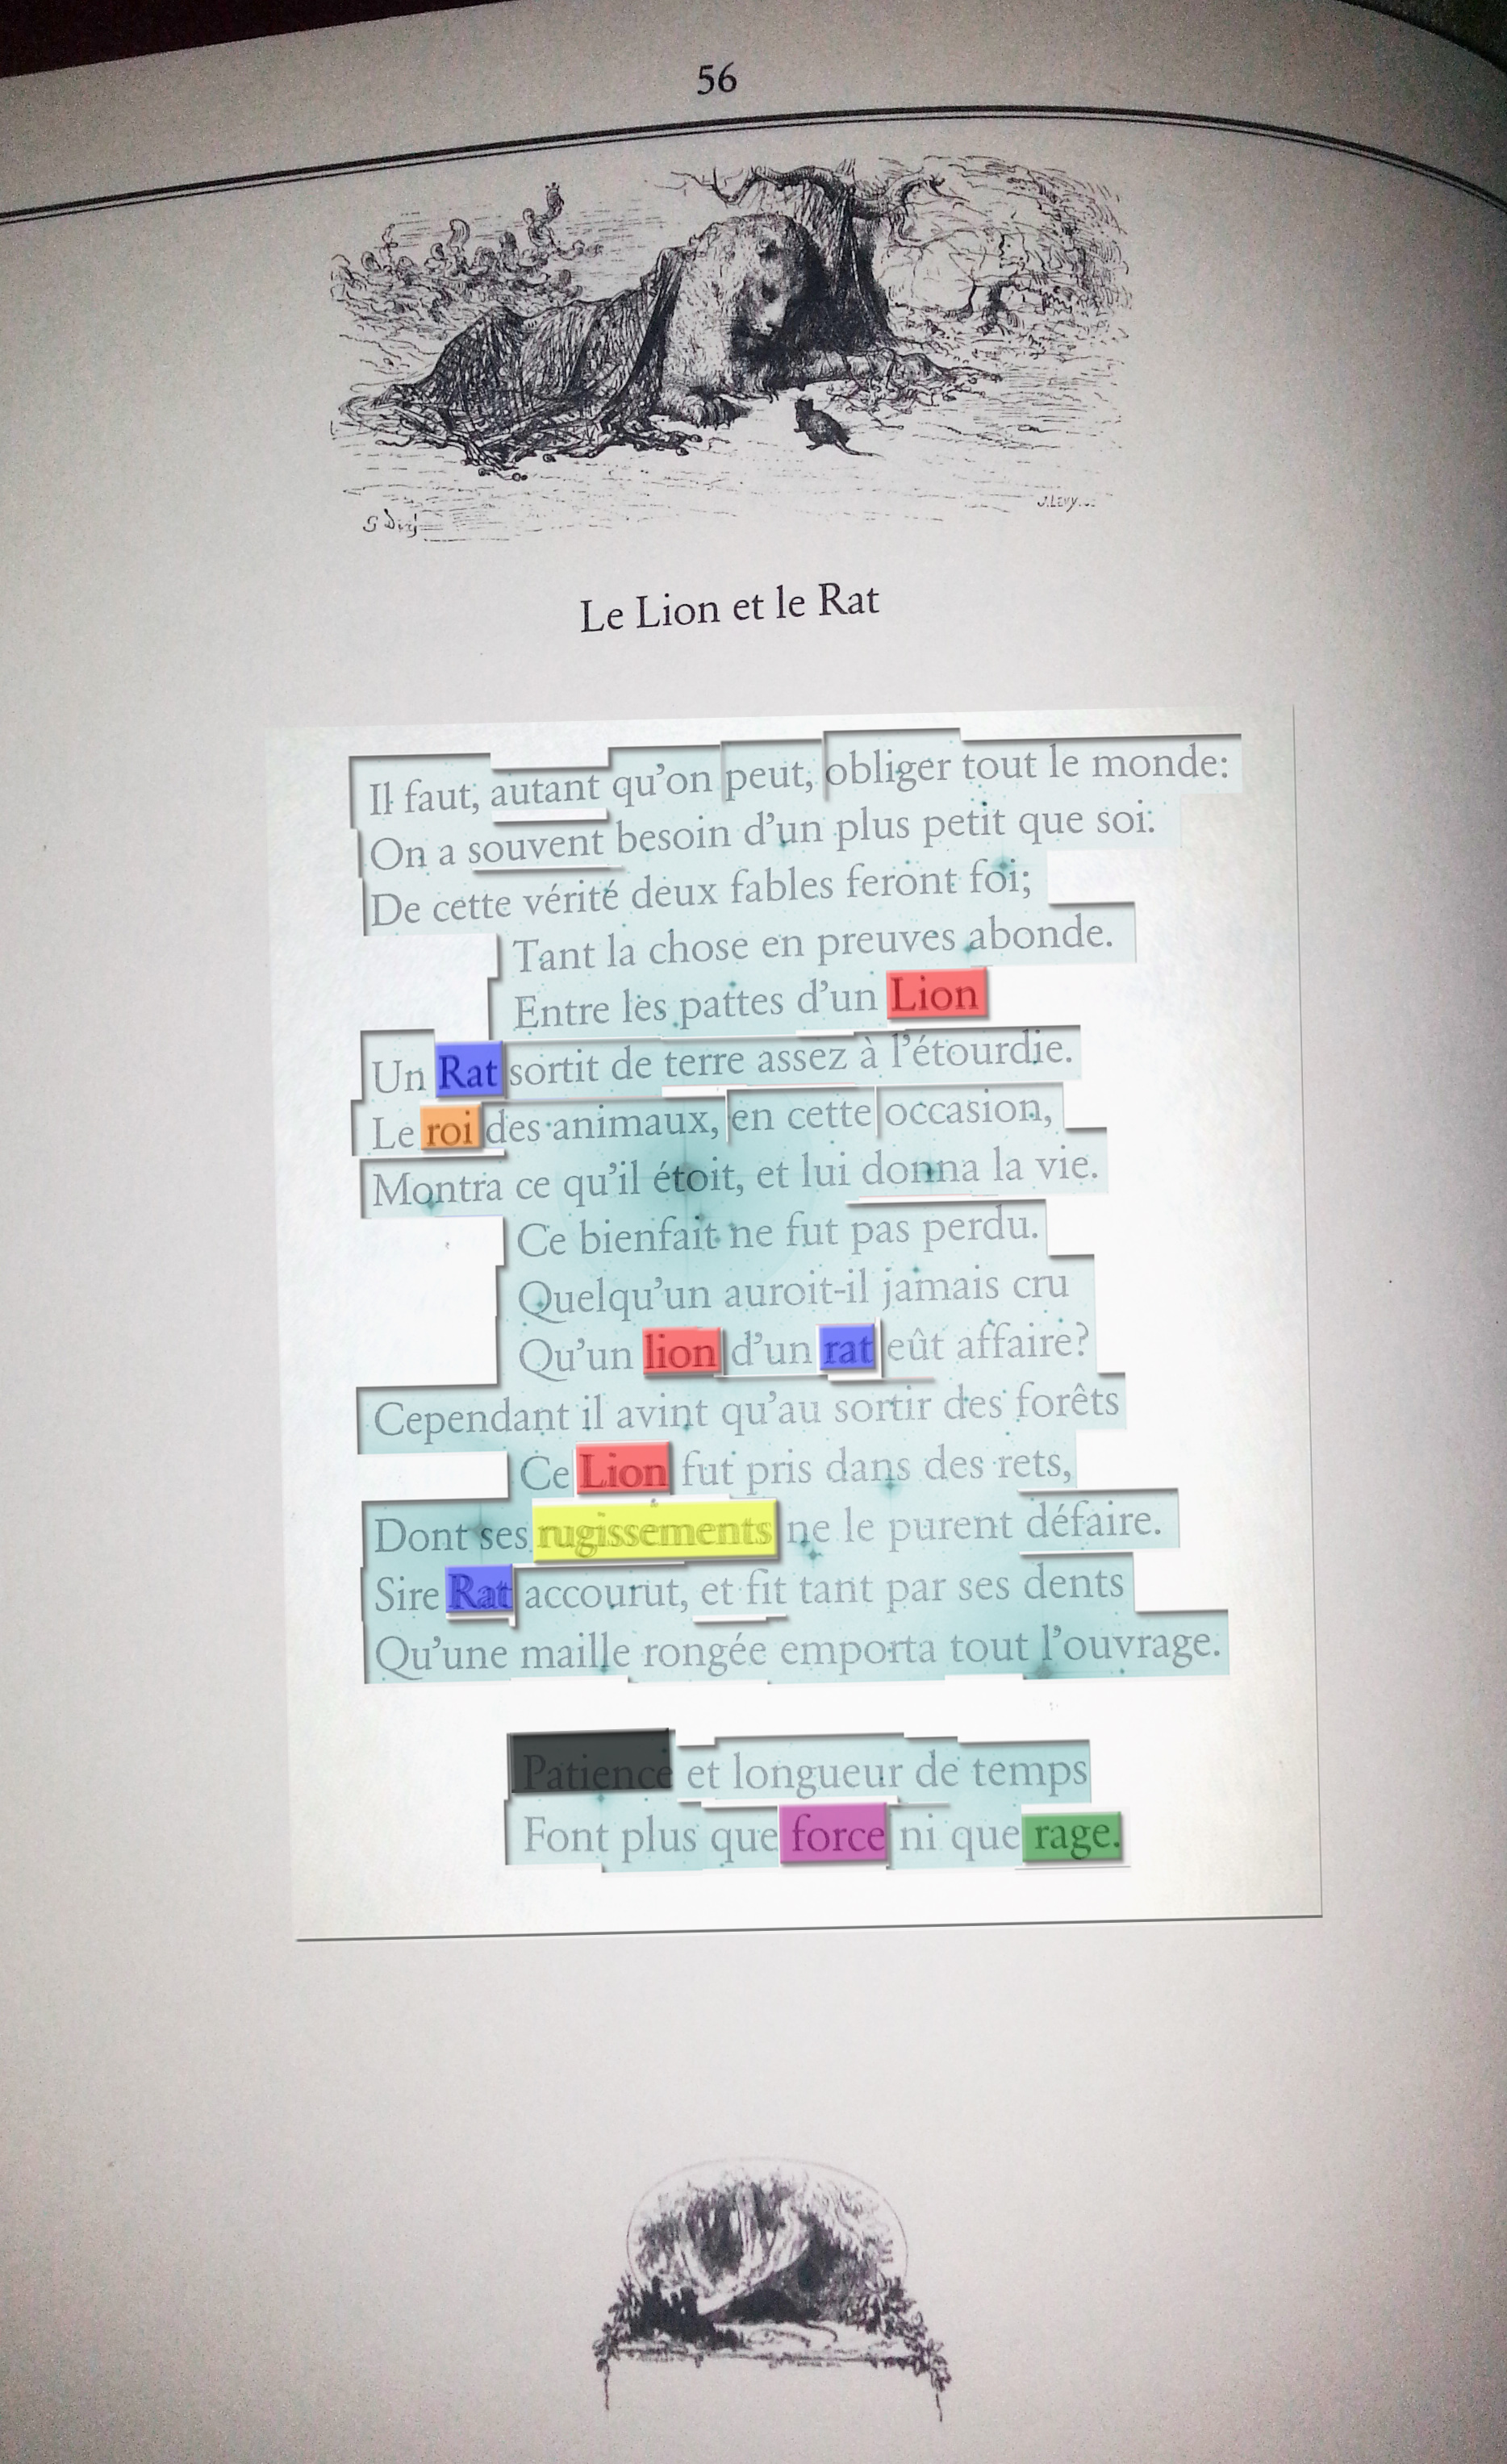 56
J. Levy
Le Lion et le Rat
Il faut, autant qu'on peut, obliger tout le monde:
On a souvent besoin d'un plus petit que soi.
De cette vérité deux fables feront foi;
Tant la chose en preuves abonde.
Entre les pattes d'un Lion
Un Rat sortit de terre assez à l'étourdie.
Le roi des animaux, en cette occasion,
Montra ce qu'il étoit, et lui donna la vie.
Ce bienfait ne fut pas perdu.
Quelqu'un auroit-il jamais cru
Qu'un lion d'un rat eût affaire?
Cependant il avint qu'au sortir des forêts
Ce Lion fut pris dans des rets,
Dont ses rugissements ne le purent défaire.
Sire Rat accourut, et fit tant par ses dents
Qu'une maille rongée emporta tout l'ouvrage.
Patience et longueur de temps
Font plus que force ni que rage.